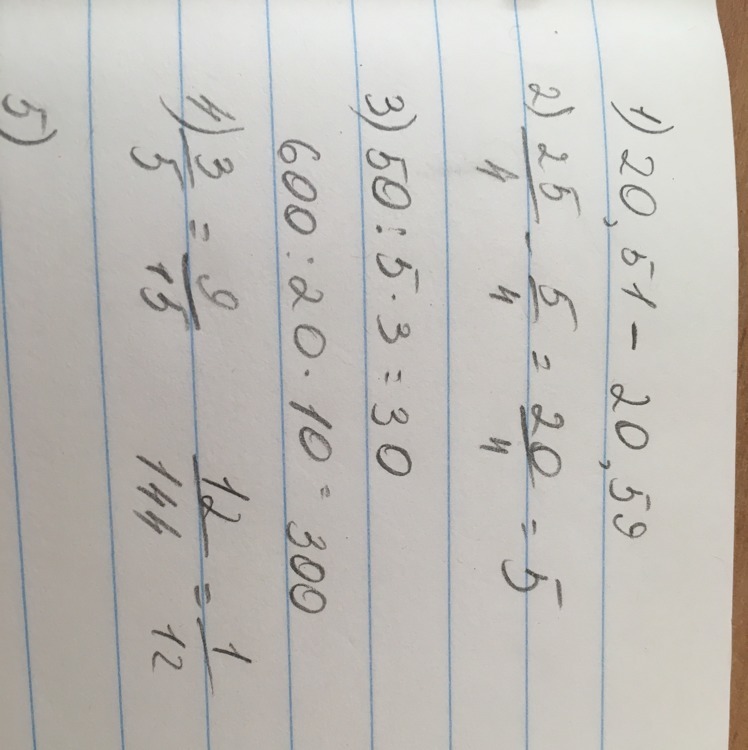 1) 20,51 - 20,59
2) 25/4 - 5/4 = 20/4 = 5
3) 50 : 5 · 3 = 30
600 : 20 · 10 = 300
4) 3/5 = 9/15 12/144 = 1/12
5)